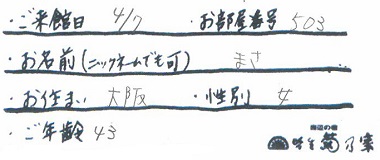 ・ご来館日 4/7 ・お部屋番号 503
・お名前(ニックネームでも可) まさ
・お住まい 大阪 ・性別 女
・ご年齢 43
海辺の宿
菊乃家